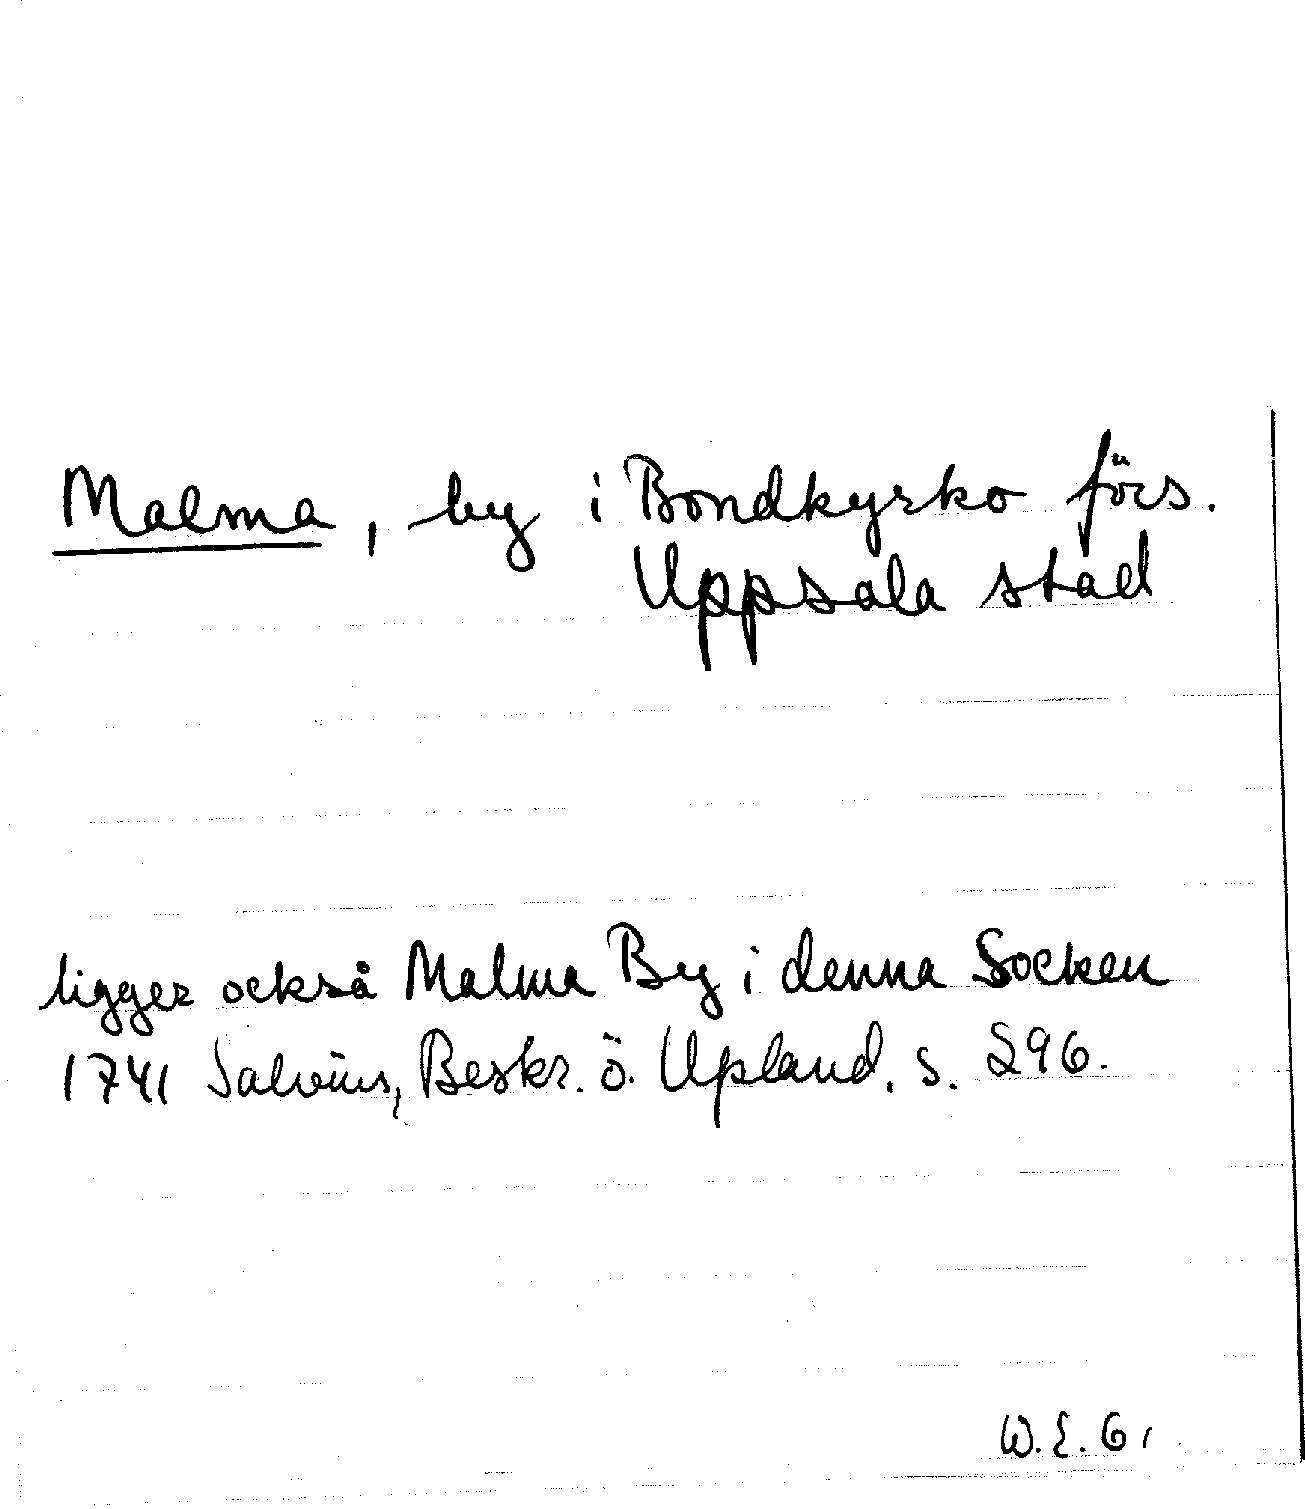 Malma, by i Bondkyrko förs.
Uppsala stad
ligger också Malma By i denna Socken
1741 Salvius, Beskr. ö. Upland. s. 296.
W. E. G.